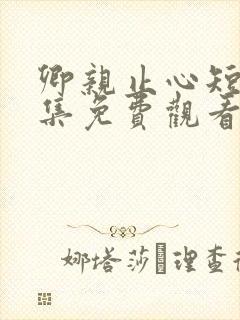 卿親止心短
集免費觀看
娜塔莎·理查